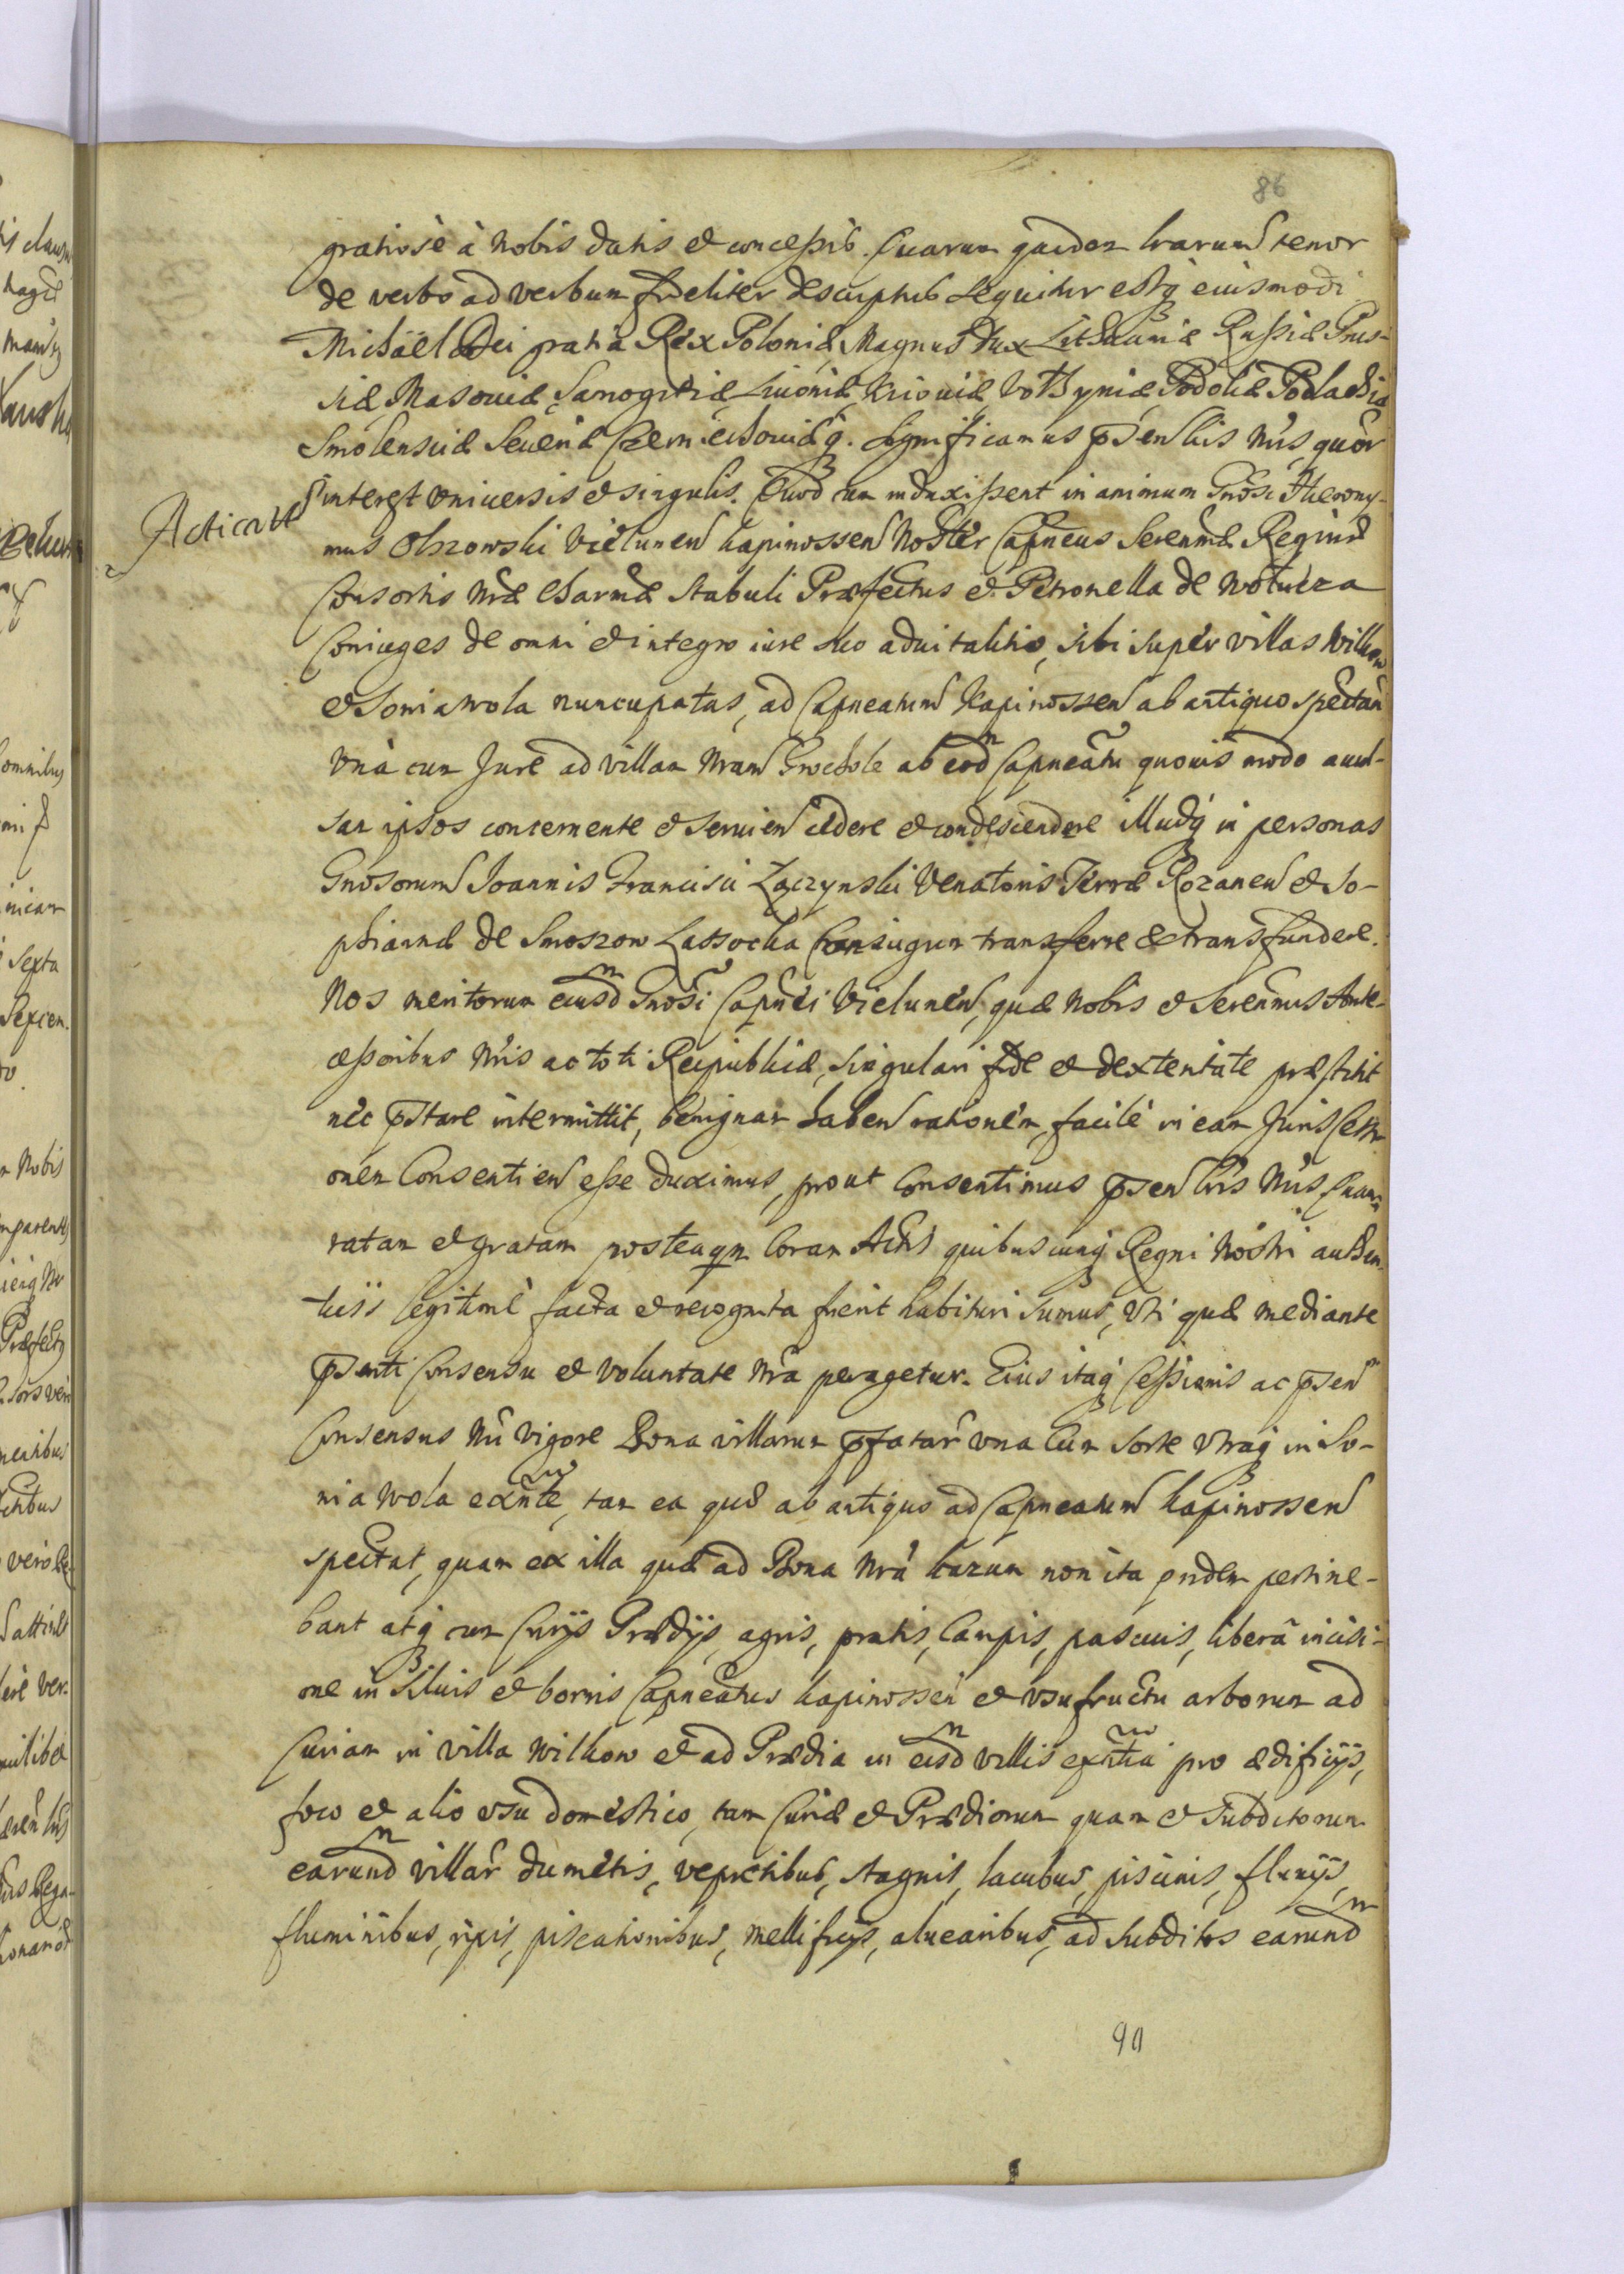 86
gratiosè à Nobis datis et concessis. Quarum quidem lrarum tenor
de verbo ad verbum fideliter descriptus sequitur estq eiusmodi
Michaël Dei gratia Rex Poloniæ Magnus Dux Lithuaniæ Russiæ Prus-
siæ Masouiæ, Samogitiæ, Liuoniæ, Kiiouiæ, Volhyniæ, Podoliæ Podlachiæ
Smolensciæ Seueriæ Czerniechouiæq. Significamus psen lris Nris, quor
interest vniuersis et singulis. Quod cum induxissent in animum Gnosi Hierony-
Acticatt
mus Olszowski Vielunen kapinossen Noster Capneus Serenmæ Reginæ
Consortis Nræ Charmæ Stabuli Præfectus et Petronella de Wotucza
Coniuges de omni et integro iure suo aduitalitio, sibi super villas Wilkow
et Soniawola nuncupatas, ad Capneatum Kapinossen ab antiquo spectan
vnà cum Jure ad villam Nram Grochole ab eod Capneatu quouis modo auul-
sam ipsos concernente et seruien cedere et condescendere illudq in personas
Gnosorum Joannis Francisci Zączynski Venatoris Terræ Rozanen et So-
phiannæ de Smoszow Lassocka Coniugum transferre et transfundere.
Nos meritorum eiusd Gnosi Capnei Vielunen, quæ Nobis et Serenmis Ante-
cessoribus Nris ac toti Reipublicæ, singulari fide et dexteritate præstitit
nec pstare intermittit, benignam haben rationem, facilè in eam Juris Cessi-
onem Consentien esse duximus, prout Consentimus psen lris Nris quam
ratam et gratam posteaqm Coram Actis quibuscunq Regni Nostri authen-
ticis legitimè facta et recognita fuerit habituri sumus, vti quæ mediante
psenti Consensu et voluntate Nra peragetur. Eius itaq Cessionis ac psen
Consensus Nri vigore Bona villarum pfatar vna Cum Sorte vtraq in So-
niawola exnte, tam ea quæ ab antiquo ad Capneatum kapinossen
spectat, quam ex illa quæ ad Bona Nra kazun non ita pridem pertine-
bant atq cum Curijs Prædijs, agris, pratis, Campis, pascuis, liberâ incisi-
one in Siluis et borris Capneatus kapinossen et vsufructu arborum ad
Curiam in villa Wilkow et ad Prædia in eisd villis exntia pro ædificijs,
foco et alio vsu domestico, tam Curiæ et Prædiorum quam et Subditorum
earund villar dumetis, vepretibus, stagnis, lacubus, piscinis, fluuijs,
fluminibus, ripis, piscationibus, mellificijs, aluearibus, ad subditos earund
90